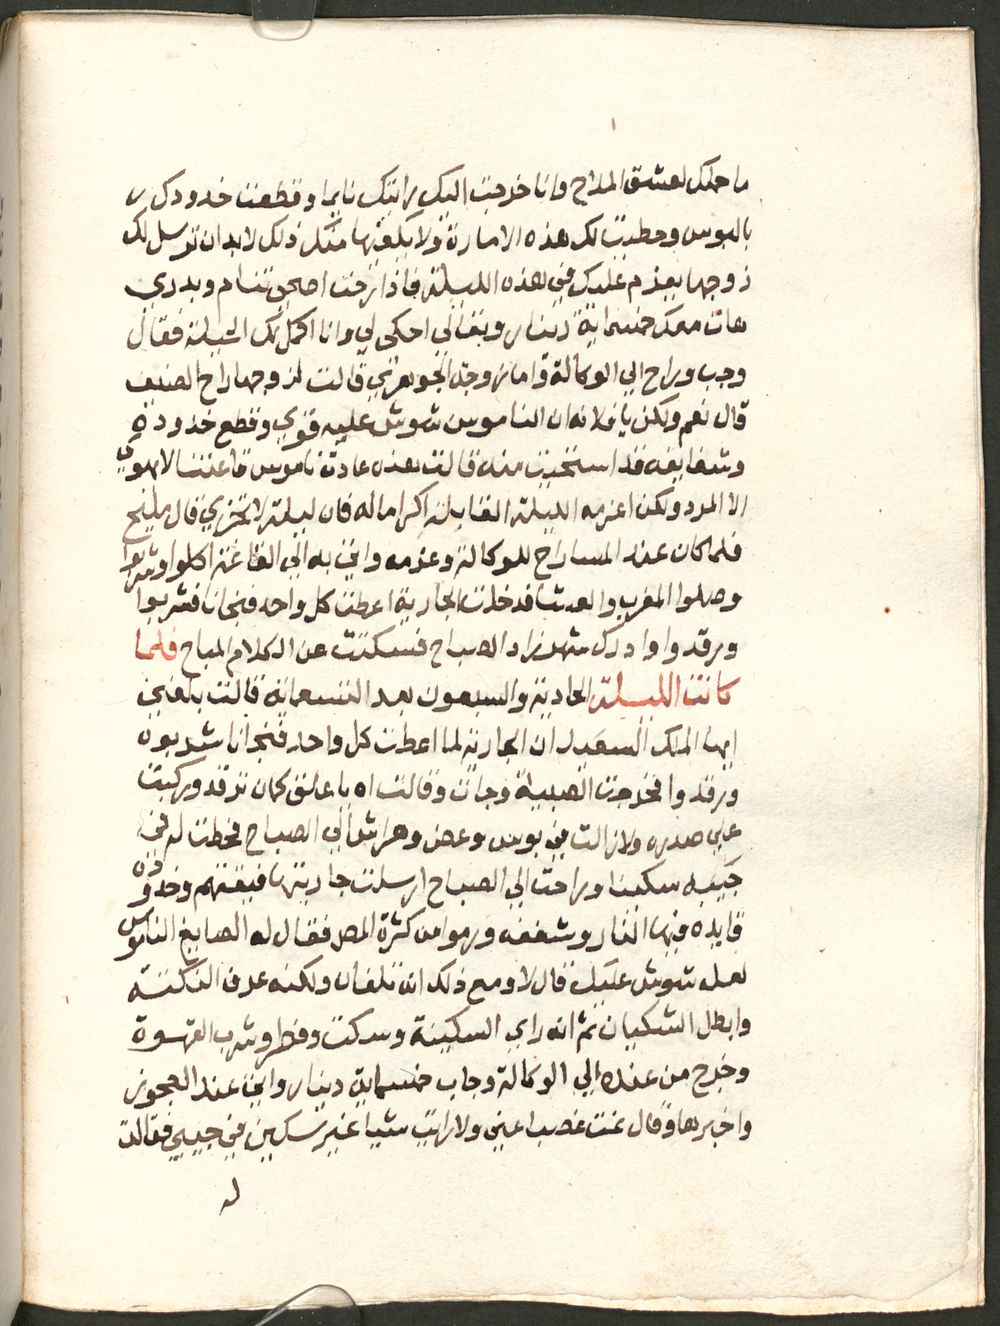 ما حلك لعشق الملاح وانا خرجت اليك رايتك نايما وقطعت خدودك
بالبوس وحطيت لك هذه الامارة ولا يكفيها منك ذلك لابد ان ترسل لك
زوجها يعزم عليك في هذه الليلة فاذا رحت اصحى تنام وبدري
هات معك خمسماية دينار وتعالى احكى لي وانا اكمل لك الحيلة فقال
وجب وراح الي الوكالة واما زوجة الجوهرجي قالت لزوجها راح الضيف
قال نعم ولكن يا فلانه ان الناموس شوش عليه قوي وقطع خدوده
وشفايفه قد استحيت منه قالت هذه عادة ناموس قاعتنا لا يهوي
الا المرد ولكن اعزمه الليلة القابلة اكراما له فان ليلة لا تجزي قال مليح
فلما كان عند المسا راح للوكالة وعزمه واتى به الي القاعة اكلوا وشربوا
وصلوا المغرب والعشا فدخلت الجارية اعطت كل واحد فنجانا فشربوا
ورقدوا وادرك شهرزاد الصباح فسكتت عن الكلام المباح فلما
كانت الليلة الحادية والسبعون بعد التسعماية قالت بلغني
ايها الملك السعيد ان الجارية لما اعطت كل واحد فنجانا شربوه
ورقدوا فخرجت الصبية وجات وقالت اه يا عالق كمان ترقد وركبت
على صدره ولا زالت في بوس وعض وهراش الي الصباح فحطت له في
جيبه سكينا وراحت الي الصباح ارسلت جاريتها فيقتهم وخدوده
قايده فيها النار وشفغه ورموا من كثرة المص فقال له الصايغ الناموس
لعل شوش عليك قال لا ومع ذلك انه تلفان ولكنه عرف النكتة
وابطل الشكيان ثم انه راي السكينة وسكت وفطر وشرب القهوة
وخرج من عنده الي الوكالة وجاب خمسماية دينار واتى عند العجوز
واخبرها وقال نمت غصبا عني ولا رايت شيا غير سكين في جيبي فقالت
له